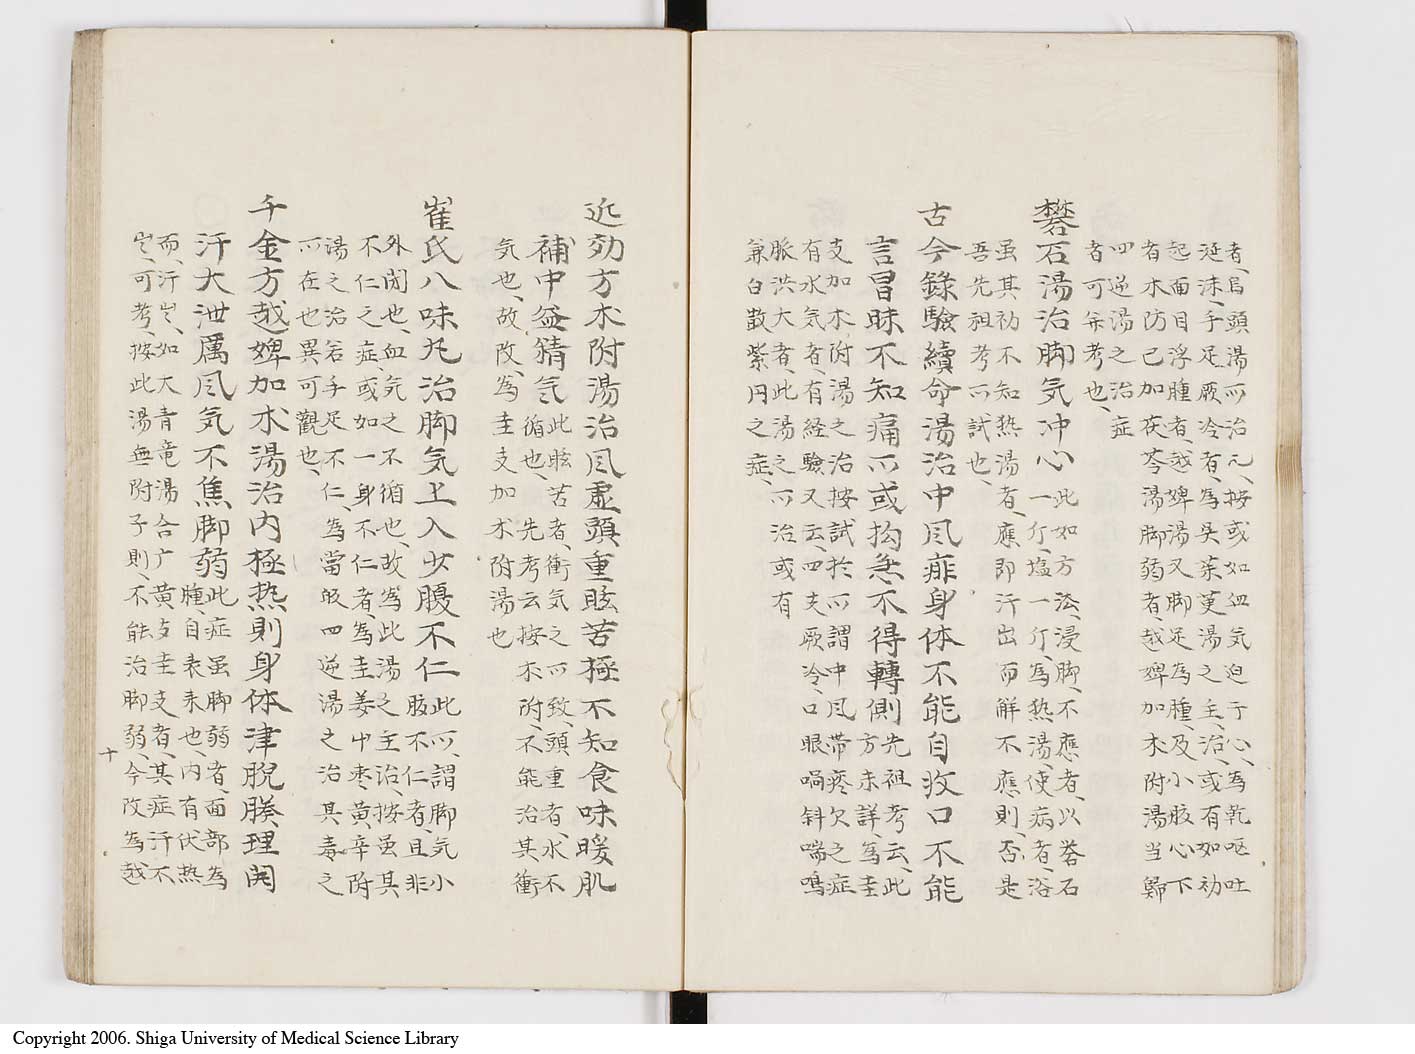 者、烏頭湯所治元、按或如血気迫于心、為乾呕吐
延沫、手足厥冷者、為呉茱萸湯之主治、或有如初
起面目浮腫者、越婢湯又脚足為腫、及小股心下
者木防已加茯苓湯脚弱者、越婢加术附湯当歸
四逆湯之治症
者可并考也、
礬石湯治脚気冲心
此如方法、浸脚、不應者、以礬石
一斤、塩一斤為热湯、使病者、浴
虽其初不知热湯者、應即汗出而解不應則否是
吾先祖考所試也、
古今錄驗續命湯治中风痱身体不能自收口不能
言冒昧不知痛所或拘急不得轉側
先祖考云、此
方未詳為圭
支加术附湯之治按試於所謂中风帯疼欠之症
有水気者、有経驗又云、四支厥冷、口眼喎斜喘鳴
脈洪大者、此湯之所治或有
兼白散紫円之症、
近効方术附湯治风虚頭重眩苦極不知食味暖肌
補中益精気
此眩苦者、衝気之所致、頭重者、水不
循也、先考云按术附、不能治其衝
気也、故改為圭支加术附湯也
崔氏八味丸治脚気上入少腹不仁
此所謂脚気小
股不仁者、且非
外閉也、血気之不循也、故為此湯之主治、按虽其
不仁之症、或如一身不仁者、為圭姜中枣黄辛附
湯之治若手足不仁、為當皈四逆湯之治其毒之
所在也異、可觀也、
千金方越婢加术湯治内極热則身体津脱腠理開
汗大泄厲风気不焦脚弱
此症虽脚弱者、面部為
腫、自表来也、内有伏热
而、汗出、如大青竜湯合广黄支圭支者、其症汗不
出、可考、按此湯無附子則、不能治脚弱、今改為越
十
Copyright 2006. Shiga University of Medical Science Library